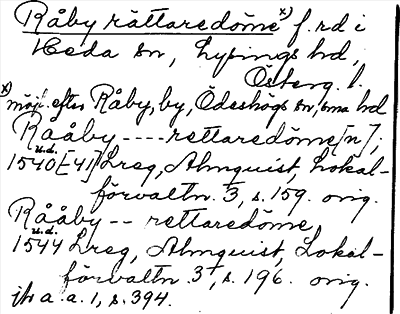 Råby rättaredöme x) f. rd i
Heda sn, Lysings hd,
Österg. l.
x) möjl. efter Råby, by, Ödeshögs sn, sma hd
Rååby ---- rettaredöme[n];
u.d.
1540[-41] Lreg, Almquist, Lokal-
förvaltn. 3, s. 159. orig.
Rååby -- rettaredöme
u.d.
1544 Lreg, Almquist, Lokal-
förvaltn. 3, s. 196. orig.
jfr a. a. 1, s. 394.